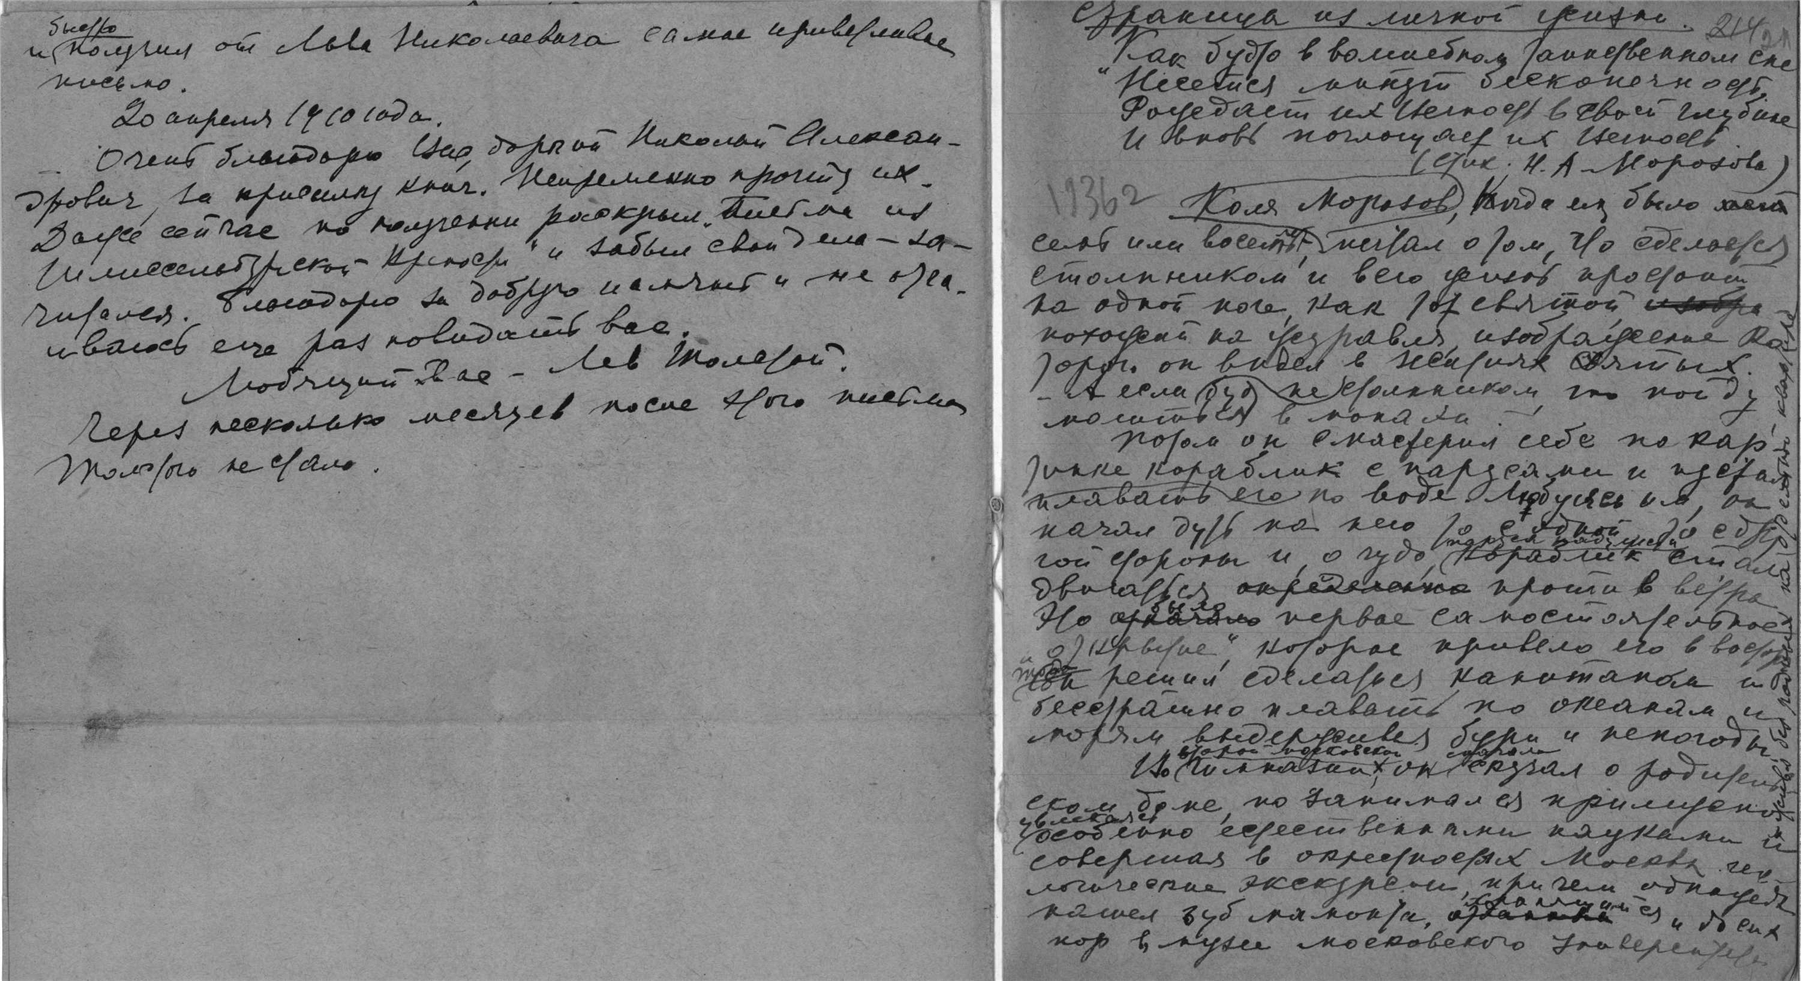 быстро
и получил от Льва Николаевича самое приветливое
письмо.
20 апреля 1910 года.
Очень благодарю Вас, дорогой Николай Алексан-
дрович, за присылку книг. Непременно прочту их.
Даже сейчас по получении раскрыл „Письма из
Шлиссельбургской крепости" и забыл свои дела – за-
читался. Благодарю за добрую память и не отча-
иваюсь еще раз повидать вас.
Любящий Вас – Лев Толстой.
Через несколько месяцев после этого письма
Толстого не стало.
Страница из личной жизни.
214
21
Как будто в волшебном таинственном сне
"Несется минут бесконечность,
Рождает их вечность в своей глубине
И вновь поглощает их вечность
(Стих. Н. А. Морозова)
19362
Коля Морозов, когда ему было лет
семь или восемь, мечтал о том, что сделается
столпником и всю жизнь простоит
на одной ноге, как тот святой изобра
похожий на журавля, изображение ко
торого он видел в житиях святых.
– А если буду не столпником, то пойду
молиться в монахи
Потом он смастерил себе по кар
тинке кораблик с парусами и пустил
плавать его по воде. Любуясь им, он
начал дуть на него то с одной то с дру
гой стороны и, о чудо, кораблик стал
двигаться определенно против ветра
было
Это означало первое самостоятельное
„открытие", которое привело его в восторг
и
тогда
он решил сделаться капитаном и
бесстрашно плавать по океанам и
морям выдерживая бури и непогоды.
второй московской сначала
Но в гимназии, он скучал о родитель
ском доме, но занимался прилежно
увлекался
особенно естественными науками и
совершая в окрестностях Москвы гео-
логические экскурсии, причем однажды
хранящийся
нашел зуб мамонта, и до сих
пор в музее московского университета